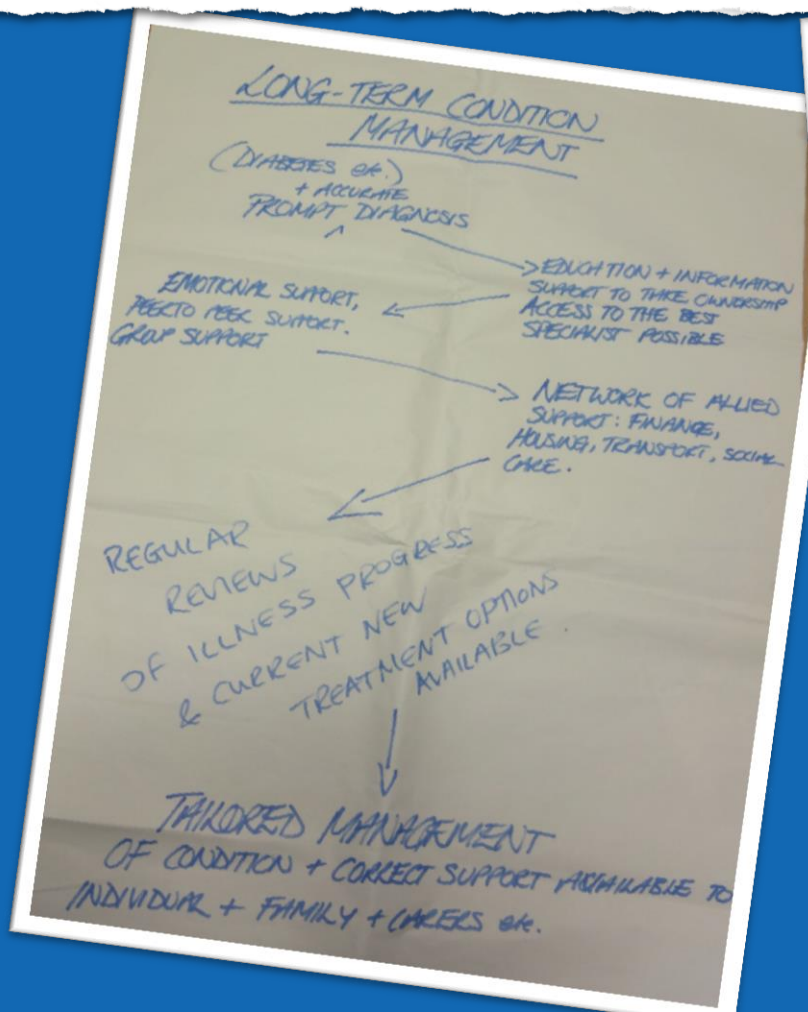 LONG-TERM CONDITION
MANAGEMENT
(DIABETES etc.)
+ ACCURATE
^
PROMPT DIAGNOSIS
EDUCATION + INFORMATION
SUPPORT TO TAKE OWNERSHIP
ACCESS TO THE BEST
SPECIALIST POSSIBLE
EMOTIONAL SUPPORT,
PEER TO PEER SUPPORT.
GROUP SUPPORT
NETWORK OF ALLIED
SUPPORT: FINANCE,
HOUSING, TRANSPORT, SOCIAL
CARE.
REGULAR
REVIEWS
OF ILLNESS PROGRESS
& CURRENT NEW
TREATMENT OPTIONS
AVAILABLE.
TAILORED MANAGEMENT
OF CONDITION + CORRECT SUPPORT AVAILABLE TO
INDIVIDUAL + FAMILY + CARERS etc.